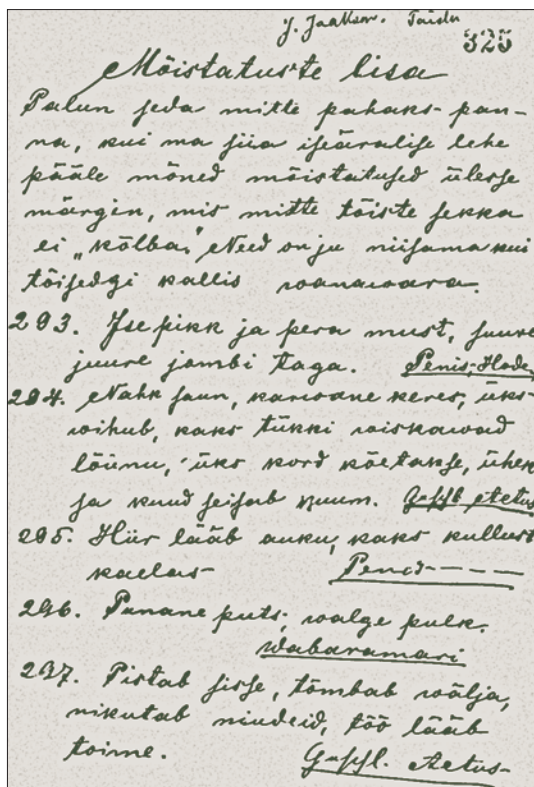 J. Jaakson. Taidu
325
Mõistatuste lisa
Palun seda mitte pahaks pan-
na, kui ma siia iseäralise lehe
pääle mõned mõistatused ülesse
märgin, mis mitte tõiste sekka
ei „kõlba." Need on ju niisama kui
tõisedgi kallis vanavara.
293. Ise pikk ja pera must, suure
juure jambi taga. Penis, Hode
294. Nahk saun, karvane keres, üks
vihub, kaks tükki viskavad
lõunu, üks kord köetakse, ühek
ja kuud seisab kuum. Geschl. Aetus
295. Hiir lääb auku, kaks kullust
kaelas- Penis----
296. Punane puts, walge pulk.
wabaramari
297. Pistab sisse, tõmbab wälja,
nikutab niudeid, töö lääb
toime. Geschl. Aetus-